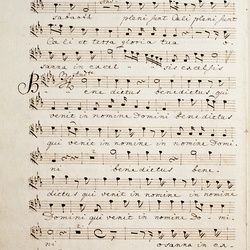 sabaoth pleni sunt Cæli pleni sunt
Cæli et terra gloria tua o
sanna in excel sis excelsis
Be ne dictus benedictus qui
venit in nomine Domini benedictus
qui venit in nomine in nomine Domi
ni benedictus bene
dictus qui venit in nomine in nomine
Domini qui venit in nomine Do mi
ni osanna in ex